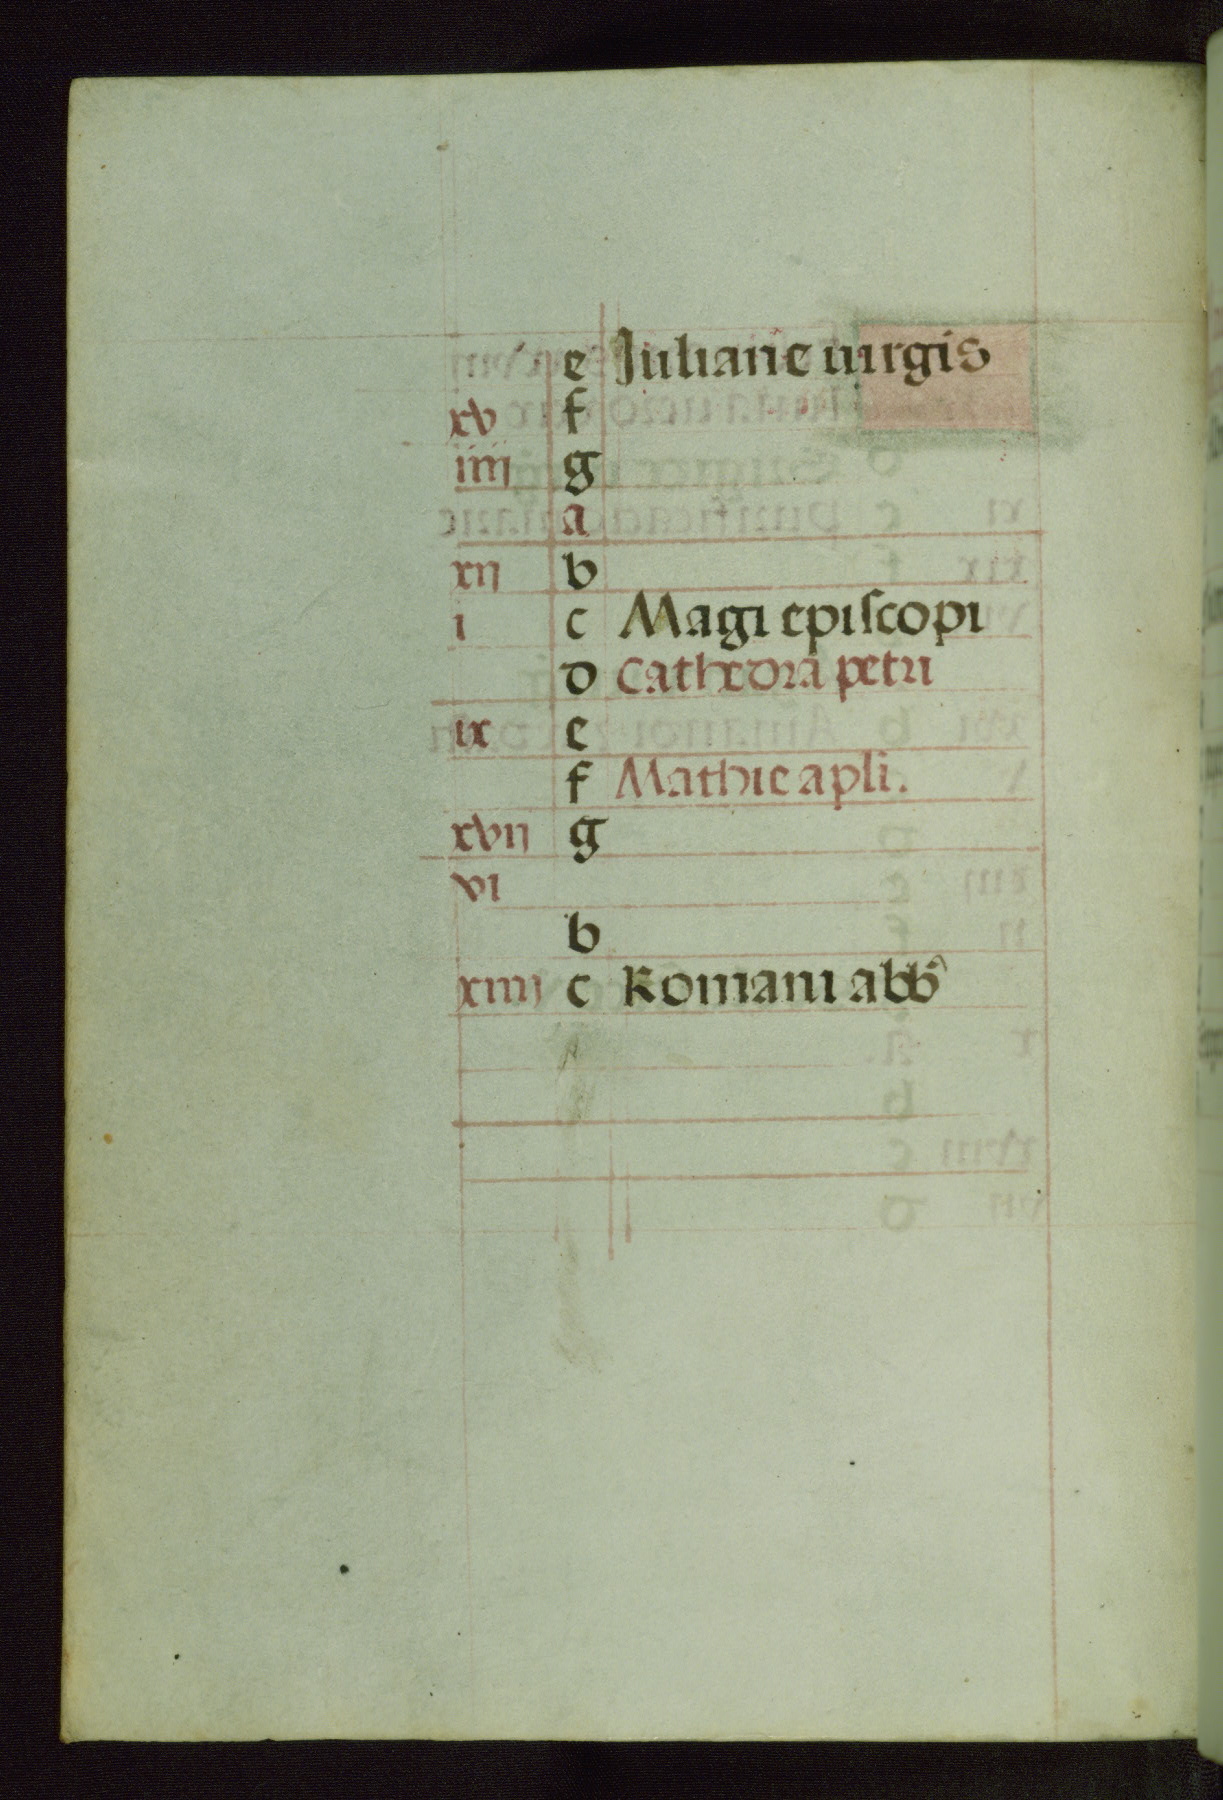 e Juliane uirgis
xv f
iiij g
a
xij b
i c Magi episcopi
d Cathedra petri
ix e
f Mathie apli.
xvij g
vi
b
xiiij c Romani abb